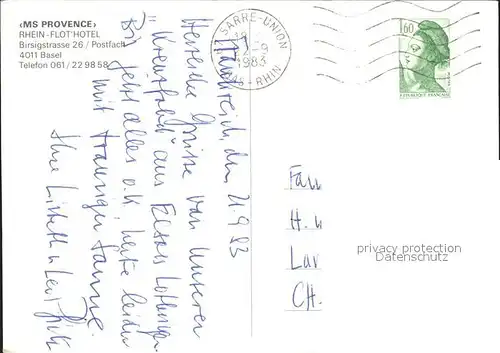 <MS PROVENCE>
RHEIN-FLOT'HOTEL
Birsigstrasse 26 / Postfach
4011 Basel
Telefon 061 / 22 98 58
SARRE-UNION
1983
BAS-RHIN
1,60
REPUBLIQUE FRANCAISE
Frankreich, den 21.9.83
Herzliche Grüsse von unserer
Kreuzfahrt aus Elsass Lothringen
Bis jetzt alles o.k. heute leider
mit trauriger Sonne.
Ihre
Fam
H. u
Lav
CH.
privacy protection
Datenschutz